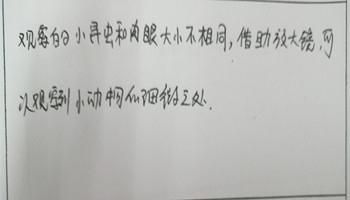 观察的小昆虫和肉眼大小不相同，借助放大镜，可
以观察到小动物的细微之处.